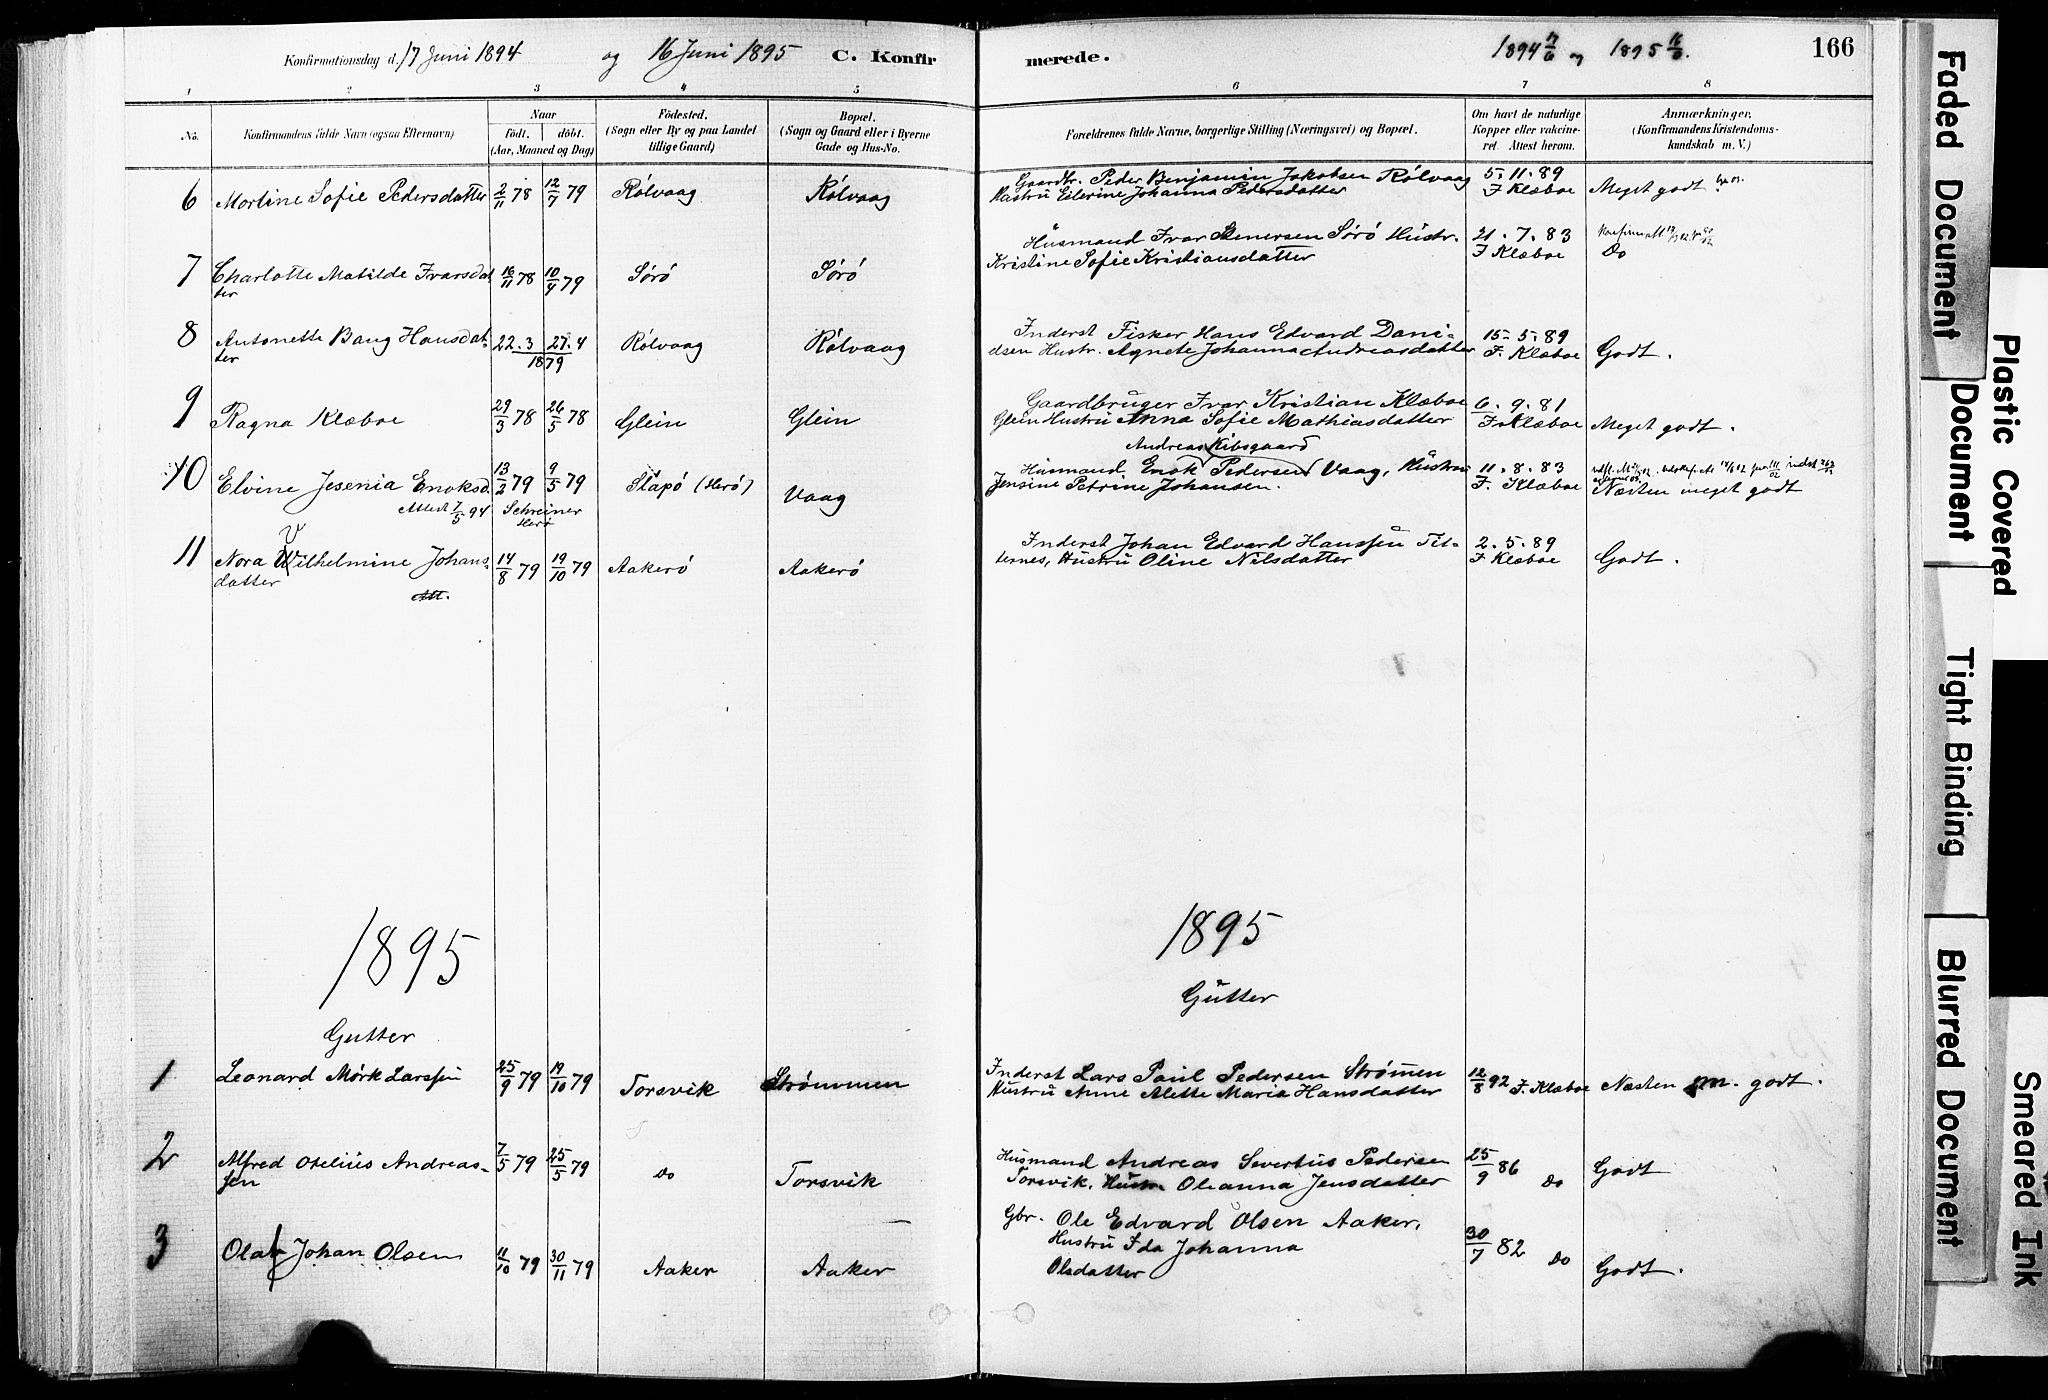 Konfirmationsdag d. 17 Juni 1894 og 16 Juni 1895 C. Konfir merede. 1894 17/6 og 1895 16/6. 166
1 2 3 4 5 6 7 8
No. Konfirmandens fulde Navn (ogsaa Efternavn)
Naar
födt. döbt.
(Aar, Maaned og Dag)
Födested.
(Sogn eller By og paa Landet
tillige Gaard)
Bopæl.
(Sogn og Gaard eller i Byerne
Gade og Hus-No.
Forældrenes fulde Navne, borgerlige Stilling (Næringsvei) og Bopæl.
Om havt de naturlige
Kopper eller vakcine-
ret. Attest herom.
Anmærkninger.
(Konfirmandens Kristendoms-
kundskab m. V.)
6 Martine Sofie Pedersdatter 2/11 78 12/7 79 Rölvaag Rölvaag
Gaardbr. Peder Benjamin Jakobsen Rölvaag
Hustru Eilerine Johanna Pedersdatter
5. 11. 89
F Klæboe Meget godt
7 Charlotte Matilde Ivarsdat
ter 16/11 78 10/4 79 Sörö Sörö
Husmand Ivar Stenersen Sörö Hustr.
Kristine Sofie Kristiansdatter
21. 7. 83
F Klæboe Do
8 Antonette Bang Hansdat-
ter 22. 3 27. 4
1879 Rölvaag Rölvaag
Inderst Fisker Hans Edvard Dani-
elsen Hustr. Agnete Johanna Andreasdatter
15. 5. 89
F. Klæboe Godt.
9 Ragna Klæboe 29/3 78 26/5 78 Glein Glein
Gaardbruger Ivar Kristian Klæboe
Glein Hustru Anna Sofie Mathiasdatter
6. 9. 81
F. Klæboe Meget godt.
10 Elvine Jesenia Enoksd. 13/2 79 9/5 79 Slapö (Herö) Vaag
Attest 7/5 94 Schreiner
Herö
Andreas Kibsgaard
Husmand Enok Pedersen Vaag, Hustru
Jensine Petrine Johansen.
11. 8. 83
F. Klæboe Næsten meget godt
11 Nora Wilhelmine Johans-
datter 14/8 79 19/10 79 Aakerö Aakerö
V
Att.
Inderst Johan Edvard Hanssen Tit-
ternes, Hustru Oline Nilsdatter
2. 5. 89
F Klæboe Godt.
1895 1895
Gutter Gutter
1 Leonard Mörk Larssen 25/9 79 19/10 79 Torsvik Strømmen
Inderst Lars Paul Pedersen Strömmen
Hustru Anne Alette Maria Hansdatter
12/8 92 F. Klæboe Næsten m. godt.
2 Alfred Otelius Andreas-
sen 7/5 79 25/5 79 Do Torsvik
Husmand Andreas Severtus Pedersen
Torsvik, Hustr. Oleanna Jensdatter
25/9 86 Do Godt
3 Olaf Johan Olsen 11/10 79 30/11 79 Aaker Aaker
Gbr. Ole Edvard Olsen Aaker,
Hustru Ida Johanna
Olsdatter
30/7 82 Do Godt.
Faded Document
Plastic Covered Document
Tight Binding
Blurred Document
Smeared Ink